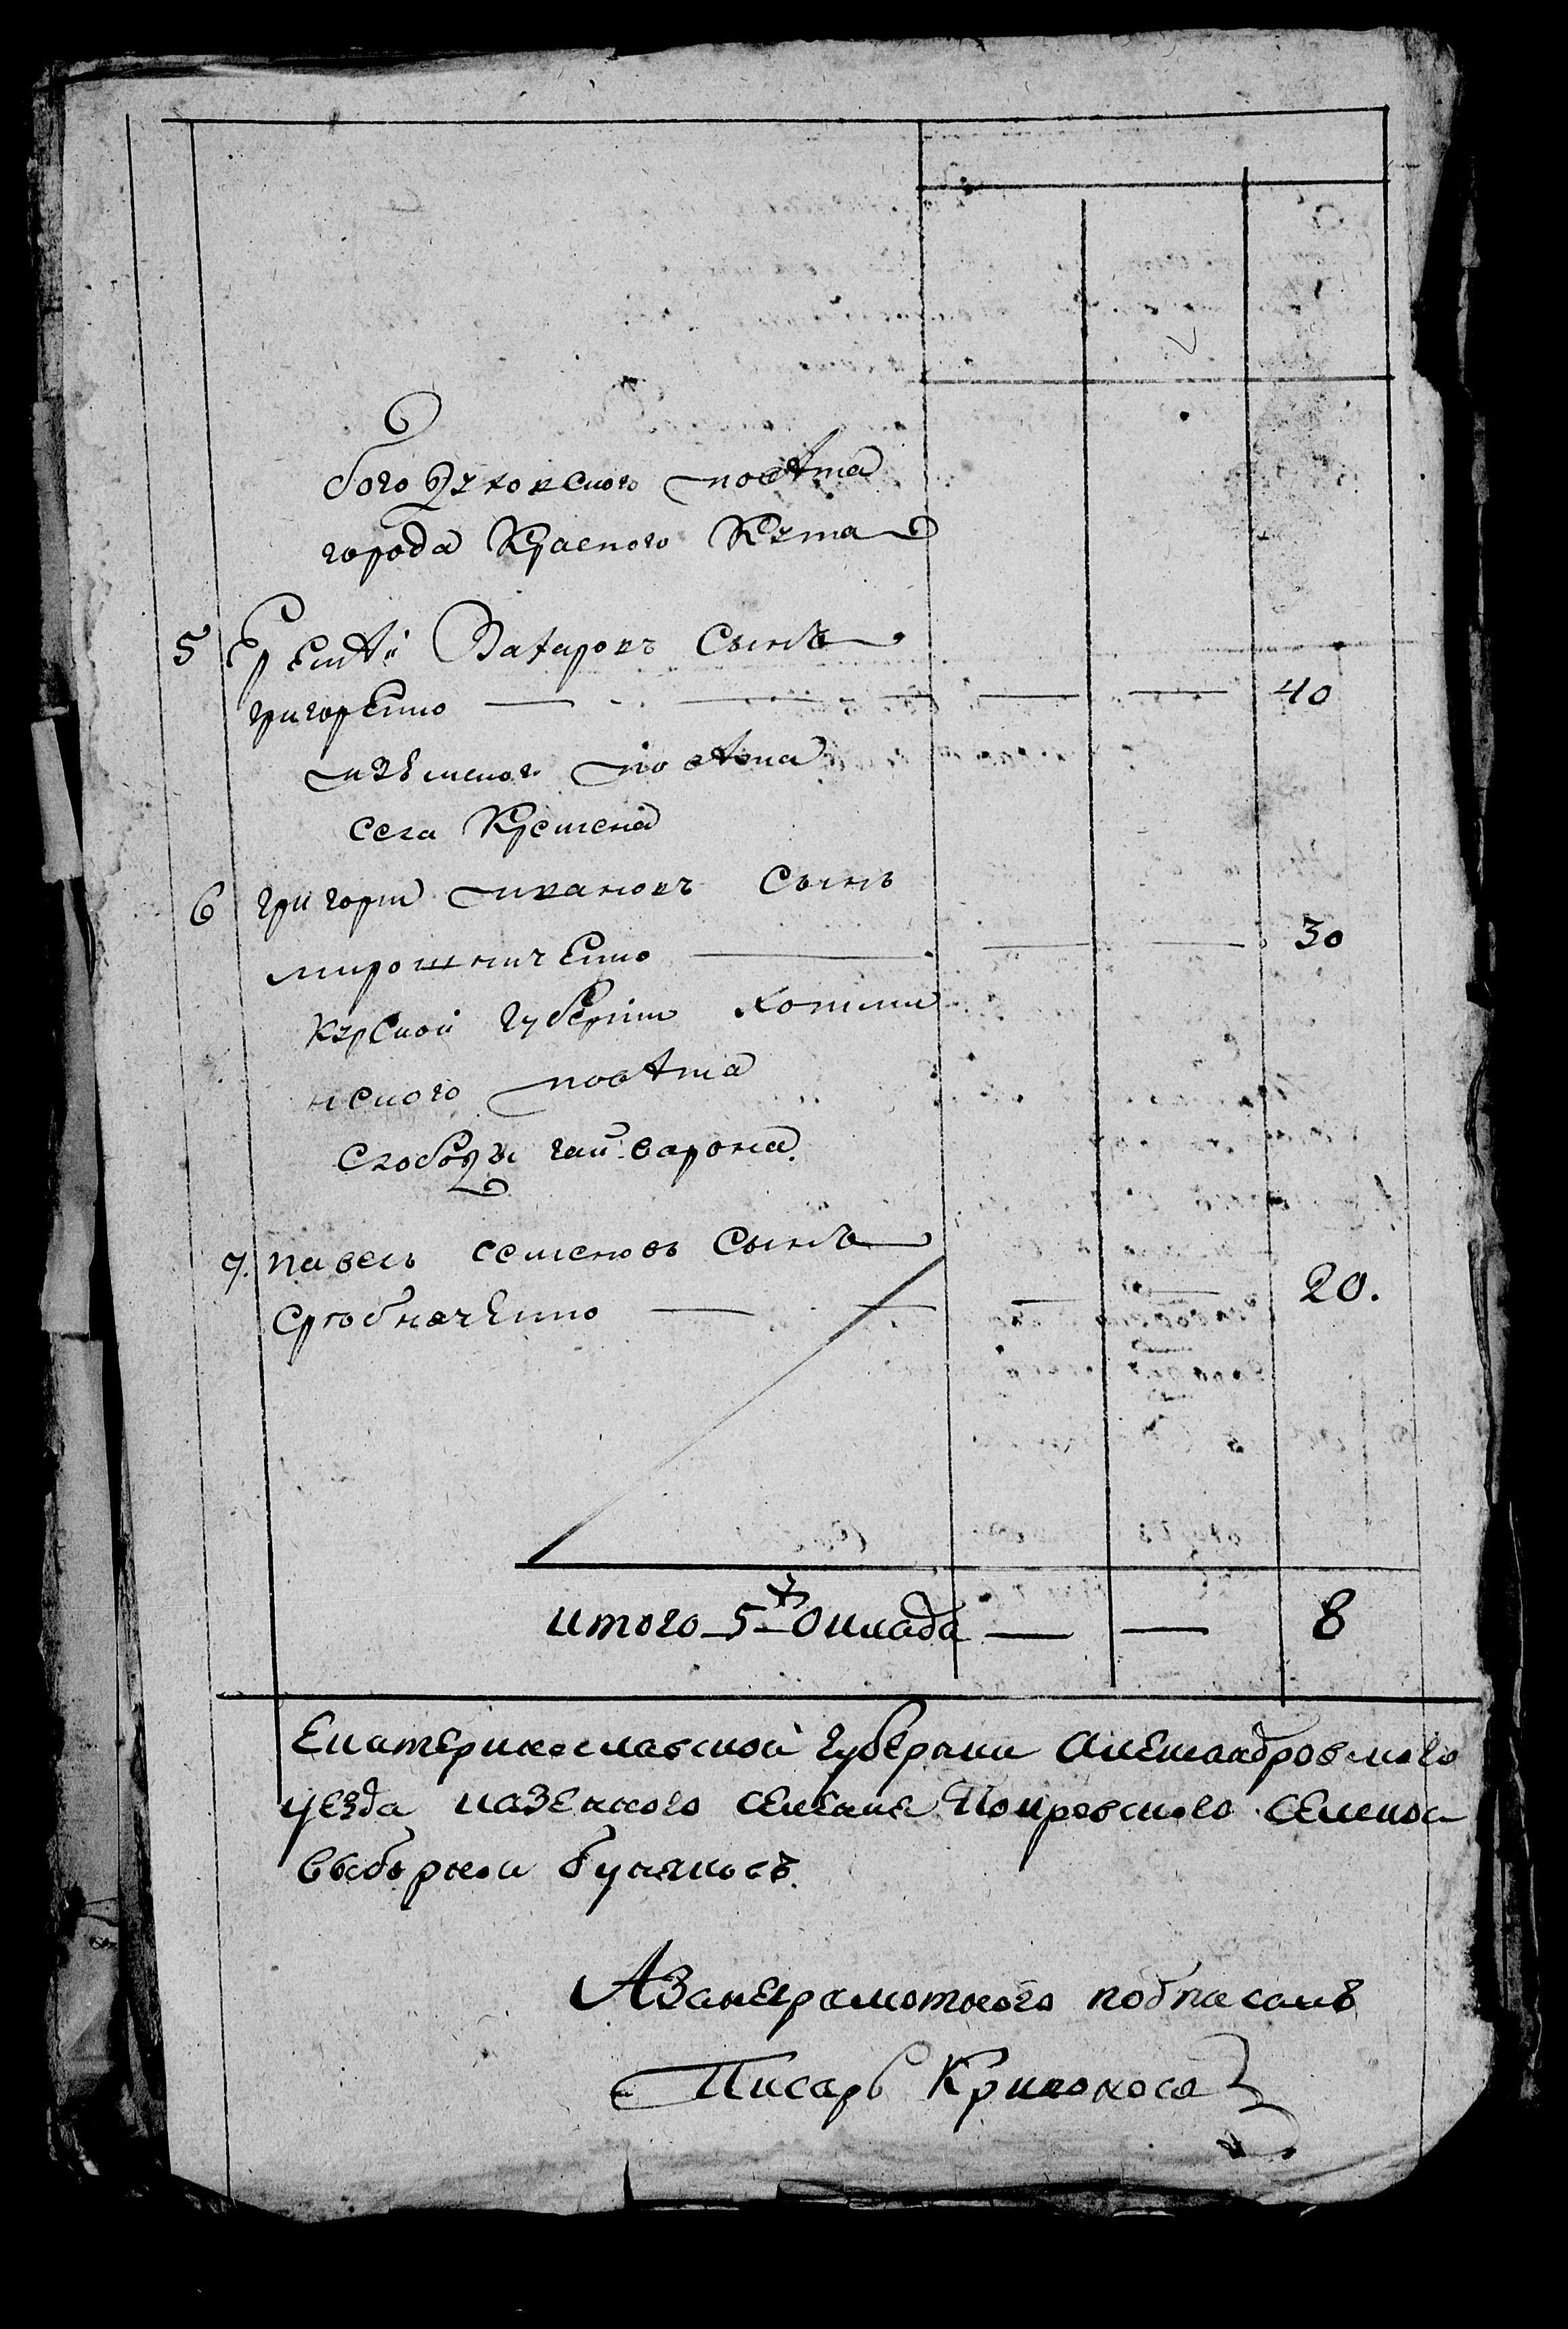 богодуховского повѣта
города Красного Кута
5 Еремѣй Захаровъ Сынъ
григоренко — — — — 40
изюмского повѣта
села Кремена
6 григорий иванов Сынъ
мирошниченко — — — 30
курской губернии хотми
нского повѣта
Слободы
7. павель семеновъ Сынъ
— — — 20.
итого 5. Оклада — — 8
Екатеринославской губернии Александровского
уезда казенного селения Покровского селской
выборной
А за неграмотного подписалъ
Писарь Кривонося